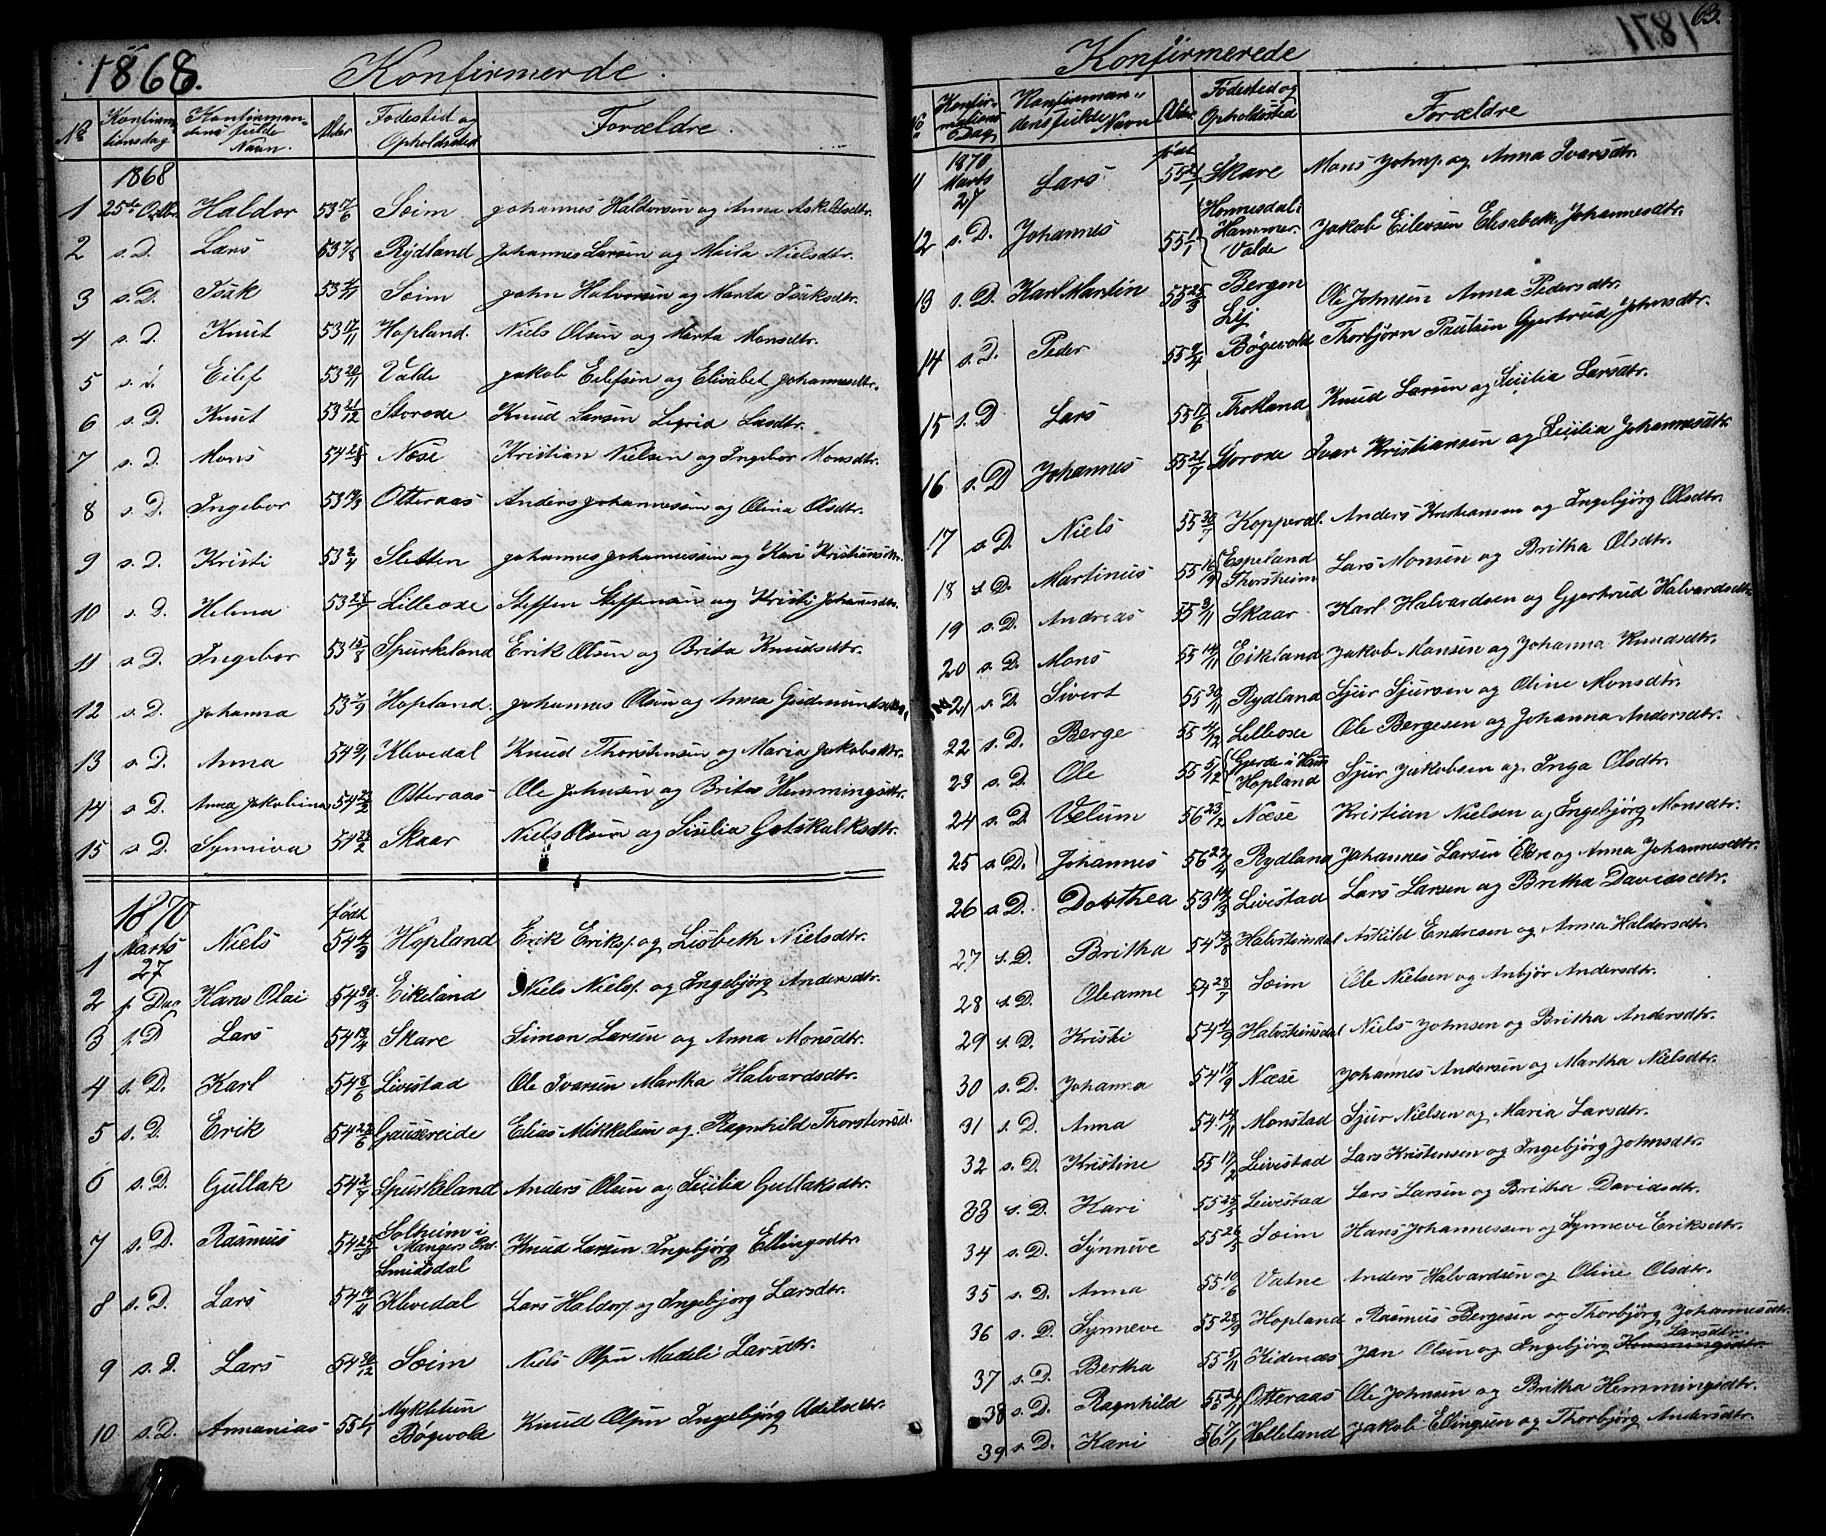 1868. Konfirmerde.
No Konfirmationsdag Konfirmandens fulde Navn. Alder Fødested og Opholdssted Forældre.
1868
1 25de Octbr. Haldor 53 17/6 Soim Johannes Haldorsen og Anna Askildsdtr.
2 s. D. Lars 53 7/8 Rydland Johannes Larsen og Maita Nielsdtr.
3 s. D. Isak 53 Soim John Halvorsen og Marta Isaksdtr.
4 s. D. Knut 53 17/11 Hopland. Niels Olsen og Marta Monsdtr.
5 s. d. Eilef 53 20/11 Valde Jakob Eilefsen og Elisabet Johannesdtr.
6 s. D. Knut 53 21/12 Storose Knud Larsen Sigrid Larsdtr.
7 s. D. Mons 54 Næse Kristian Nielsen og Ingebor Monsdtr.
8 s. D. Ingebor 53 17/3 Otteraas Anders Johannessen og Olina Olsdtr.
9 s. D. Kristi 53 2/4 Sletten Johannes Johannessen og Kari Kristiansdtr.
10 s. D. Helena 53 Lilleose Steffen Steffensen og Kristi Johansdtr.
11 s. D. Ingebor 53 15/8 Spurkeland Erik Olsen og Brita Knudsdtr.
12 s. D. Johanna 53 7/9 Hopland. Johannes Olsen og Anna Gudmundsdtr.
13 s. D. Anna 54 9/1 Klevedal Knud Thorstensen og Maria Jakobsdtr.
14 s. D. Anna Jakobina 54 22/2 Otteraas Ole Johnsen og Brita Hemmingsdtr.
15 s. D. Synniva 54 23/2 Skaar Niels Olsen og Sisilia Gotskalksdtr.
1870 født
1 Marts 27 Niels 54 4/3 Hopland Erik Eriks. og Lisbeth Nielsdtr.
2 s Dag Hans Olai 54 30/3 Eikeland Niels Niels. og Ingebjørg Andersdtr.
3 s D Lars 54 19/4 Skare Simon Larsen og Anna Monsdtr.
4 s. D. Karl 54 8/6 Livestad Ole Ivarsen Martha Halvardsdtr.
5 s. D. Erik 54 22/6 Gaustreide Elias Mikkelsen og Ragnhild Thorstensd.
6 s. D. Gullak 54 2/7 Spurkeland Anders Olsen og Sicilia Gullaksdtr.
7 s. D. Rasmus 54 25/8 Solheim i Mangers Prd. Smidsdal Knud Larsen Ingebjørg Ellingsdtr.
8 s. D. Lars 54 14/11 Klevedal Lars Haldors. og Ingebjørg Larsdtr.
9 s. D. Lars 54 30/12 Soim Niels Olsen Madeli Larsdtr.
10 s. D. Annanias 55 1/1 Mykletun Bøgevold Knud Olsen Ingebjørg Adelsdtr.
Konfirmerede
63.
1871
No Konfirmations Dag Konfirmandens fulde Navn Alder Fødested og Opholdssted Forældre
11 1870 Marts 27 Lars født 55 21/1 Skare Mons Johns. og Anna Ivarsdtr.
12 s. D. Johannes 55 1/1 Hommesdal i Hammer. Valde Jakob Eilevsen Elisabeth Johannesdtr.
13 s. D. Karl Martin 55 25/3 Bergen Lij Ole Johnsen Anna Pedersdtr.
14 s. D. Peder 55 9/4 Bøgevold Thorbjørn Paulsen Gjertrud Johnsdtr.
15 s. D Lars 55 17/6 Thotland Knud Larsen og Sicilia Larsdtr.
16 s. D Johannes 55 21/7 Storose Ivar Kristiansen og Sicilia Johannesdtr.
17 s. D. Niels 55 30/7 Kopperdl. Anders Kristiansen og Ingebjørg Olsdtr.
18 s. D. Martinus 55 16/9 Espeland Thorsheim Lars Monsen og Britha Olsdtr.
19 s. D. Andreas 55 9/11 Skaar Karl Halvardsen og Gjertrud Halvardsdtr.
20 s. D. Mons 55 14/11 Eikeland Jakob Monsen og Johanna Knudsdtr.
21 s. D. Sivert 55 30/11 Rydland Sjur Sjursen og Oline Monsdtr.
22 s. D. Berge 55 4/12 Lilleose Ole Bergesen og Johanna Andersdtr.
23 s. D. Ole 55 5/12 Gjerde i Ham. Hopland Sjur Jakobsen og Inga Olsdtr.
24 s. D. Velum 56 23/2 Næse Kristian Nielsen og Ingebjørg Monsdtr.
25 s. D. Johannes 56 22/4 Rydland Johannes Larsen Eldre og Anna Johannesdtr.
26 s. D. Dorthea 53 19/3 Livestad Lars Larsen og Britha Davidsdtr.
27 s. D. Britha 54 13/3 Halvsteindal Askild Endresen og Anna Haldorsdtr.
28 s. D. Oleanne 54 28/7 Soim Ole Nielsen og Anbjør Andersdtr.
29 s. D. Kristi 54 4/9 Halvsteinsdal Niels Johnsen og Britha Andersdtr.
30 s. D. Johanna 54 17/9 Næse Johannes Andersen og Martha Nielsdtr.
31 s. D. Anna 54 14/11 Monstad Sjur Nielsen og Maria Larsdtr.
32 s. D. Kristine 55 17/2 Leivestad Lars Kristensen og Ingebjørg Johnsdtr.
33 s. D. Kari 55 25/3 Leivestad Lars Larsen og Britha Davidsdtr.
34 s. D. Synneve 55 26/5 Soim Hans Johannessen og Synneve Eriksdtr.
35 s. D. Anna 55 10/6 Vatne Anders Halvardsen og Oline Olsdtr.
36 s. D. Synneve 55 28/9 Hopland Rasmus Bergesen og Thorbjørg Johannesdtr.
37 s. D. Bertha 55 9/11 Kidenæs Jan Olsen og Ingebjørg Hemmingsdtr. Larsdtr.
38 s. D. Ragnhild 55 21/11 Otteraas Ole Johnsen og Britha Hemmingsdtr.
39 s. D. Kari 56 7/1 Helleland Jakob Ellingsen og Thorbjørg Andersdtr.